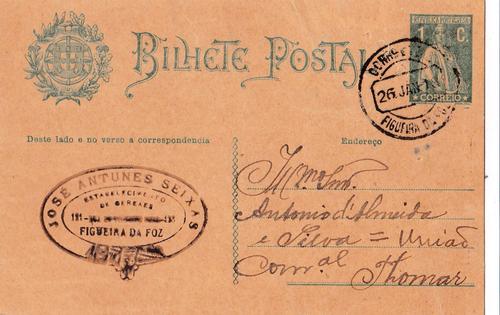 REPUBLICA PORTUGUESA
1 C.
CORREIO
BILHETE POSTAL
26 JAN
FIGUEIRA DA
Deste lado e no verso a correspondencia
Endereço
JOSÉ ANTUNES SEIXAS
ESTABELECIMENTO
DE CEREAES
FIGUEIRA DA FOZ
Illmo Snr.
Antonio d'Almeida
e Silva = União
Com.al Thomar